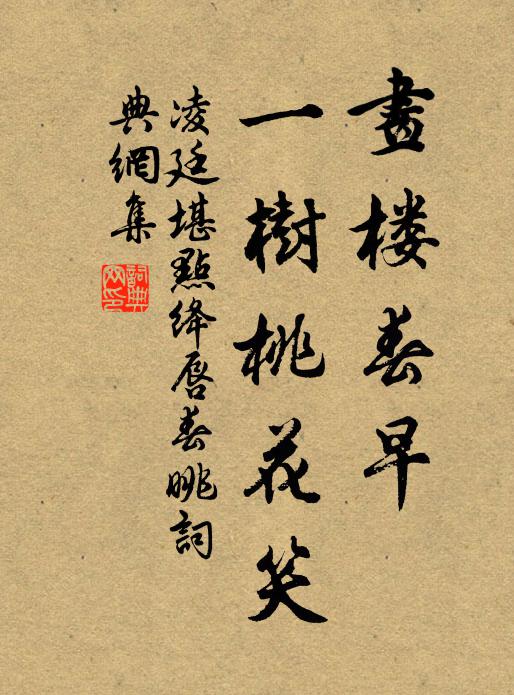 畫楼春早
一樹桃花笑
凌廷堪點绛唇春眺詞
典網集
詞典
网印